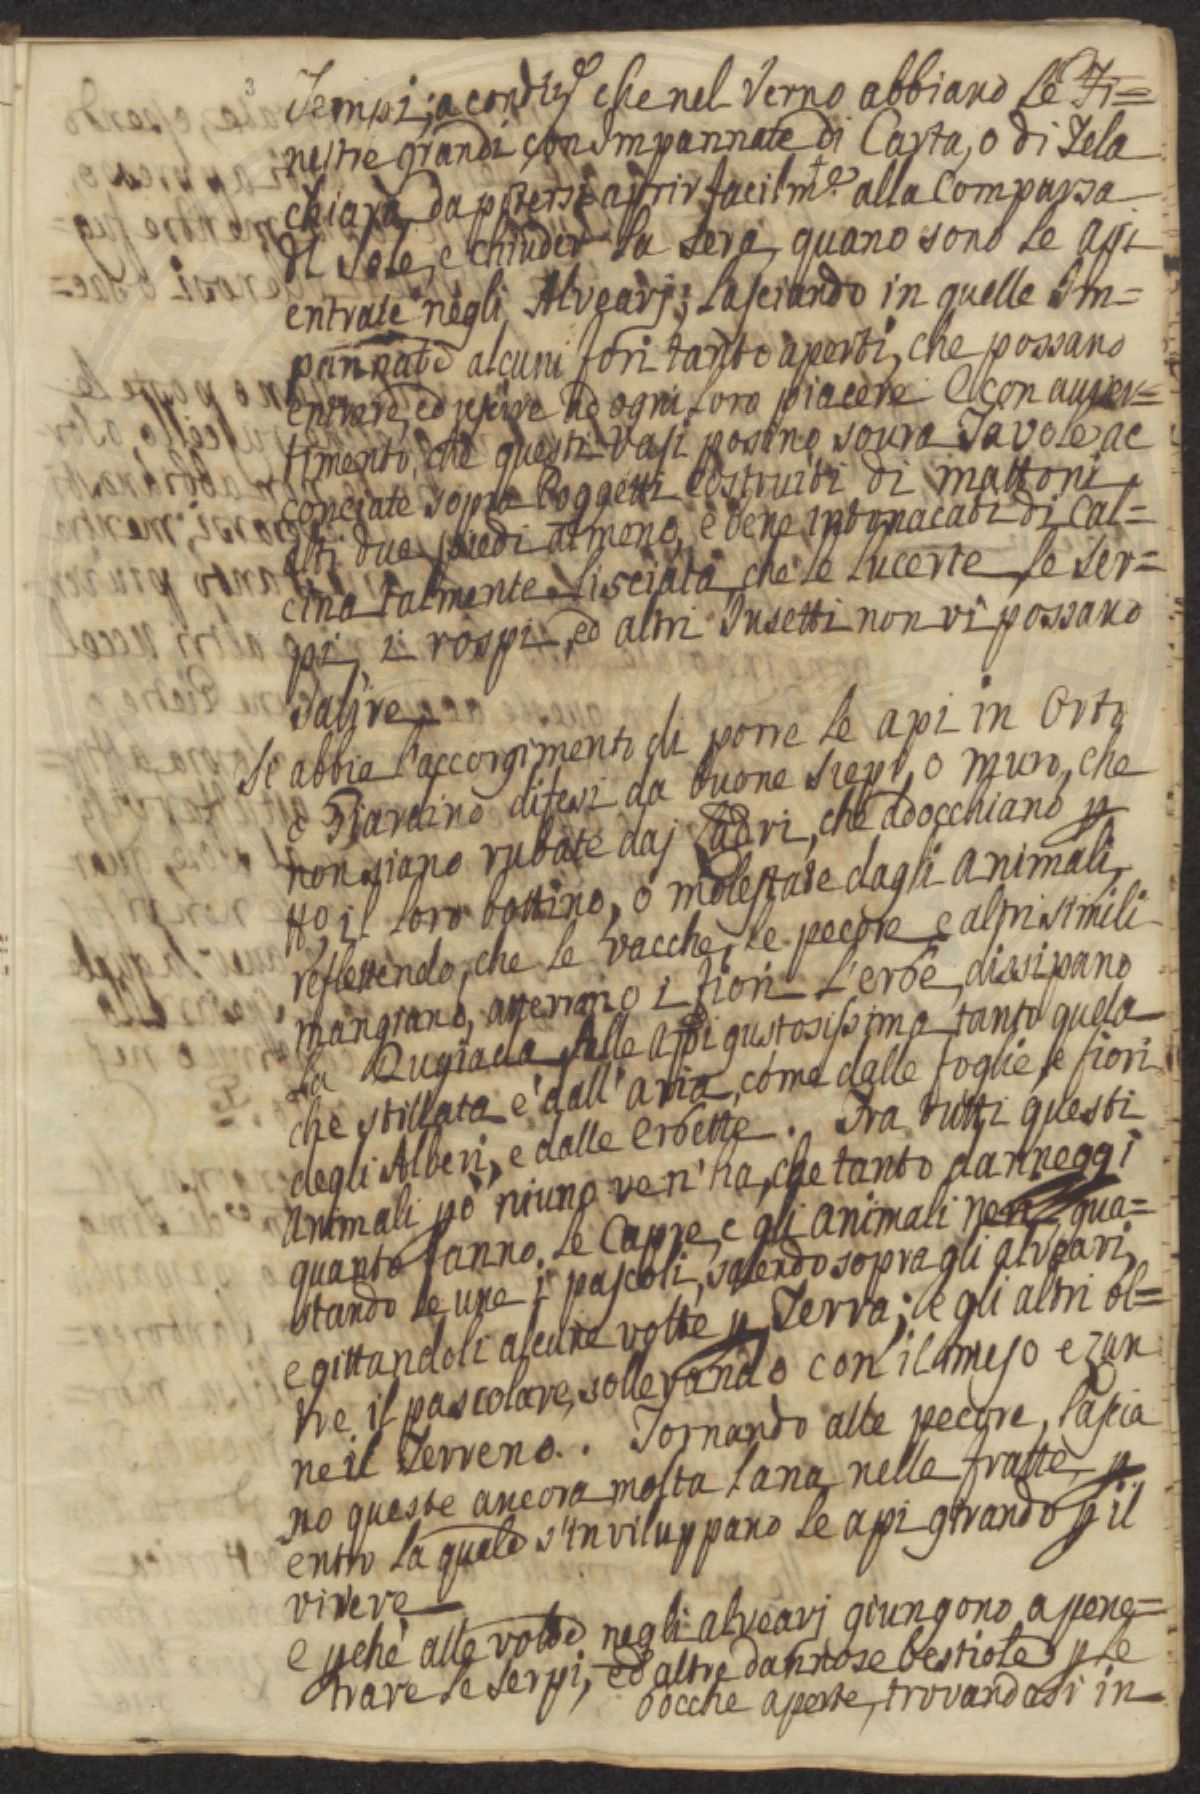 3
Tempi; a condiz.e che nel Verno abbiano le Fi=
nestre grandi con Impannate di Carta, o di Tela
chiara da potersi aprir facilm.te alla Comparsa
del Sole, e chiuder la sera, quano sono le api
entrate negli Alvearj; lasciando in quelle Im=
pannate alcuni fori tanto aperti, che possano
entrare, ed uscire ad ogni loro piacere e con avver=
timento, che questi vasi posino soura Tavole ac
conciate sopra Poggetti costruiti di mattoni
alti due piedi almeno, e bene intonacati di Cal=
cina talmente lisciata, che le lucerte, le ser=
pi, i rospi, ed altri Insetti non vi possano
salire
Si abbia l'accorgimento di porre le api in Orto
o Giardino difesi da buone siepi, o muro, che
non siano rubate daj Ladri, che adocchiano p
tto, il loro bottino, o molestate dagli animali,
reflettendo, che le vacche, le pecore e altri simili
mangiano, atterrano i fiori l'erbe, dissipano
la Rugiada alle Api gustosissima tanto quela
che stillata è dall'aria, come dalle foglie, e fiori
degli Alberi, e dalle Erbette. Fra tutti questi
Animali pò niuno ve n'ha, che tanto danneggi
quanto fanno le Capre, e gli animali neri, gua=
stando le une i pascoli, salendo sopra gli alveari,
e gittandoli alcune volte p Terra; e gli altri ol=
tre il pascolare, sollevando con il muso e zan
ne il Terreno. Tornando alle pecore, lascia
no queste ancora molta lana nelle fratte, p
entro la quale s'inviluppano le api girando p il
vivere
e pchè alle volte negli alvearj giungono a pene=
trare le serpi, ed altre dannose bestiole p le
bocche aperte, trovandosi in=